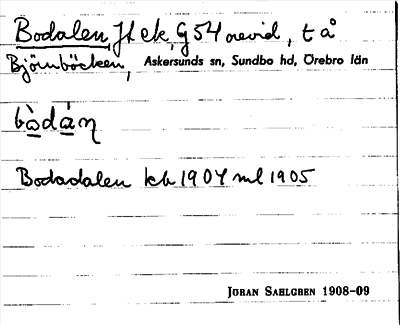 Bodalen, Jt ek, G 54 orevid, t å
Björnböcken, Askersunds sn, Sundbo hd, Örebro län
bòdáη
Bodadalen kb 1904 ml 1905
JÖRAN SAHLGREN 1908-09